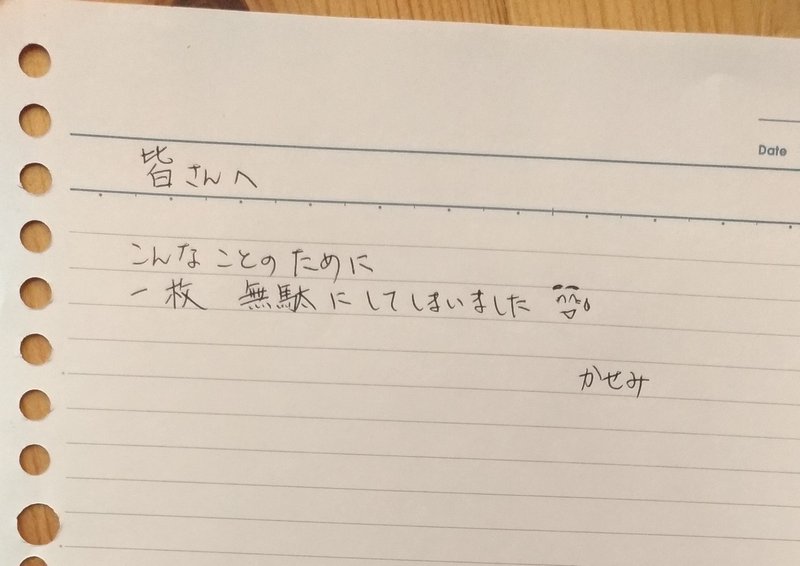 Date
皆さんへ
こんなことのために
一枚 無駄にしてしまいました
かせみ